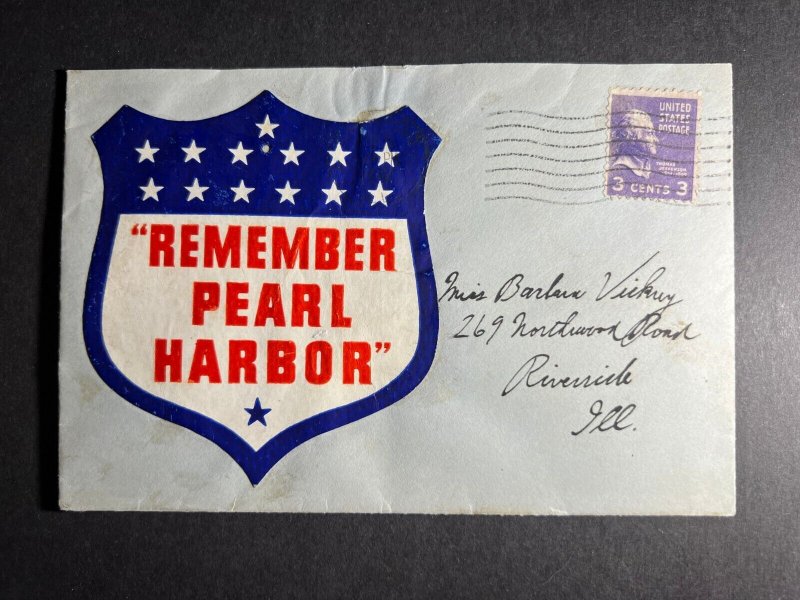 "REMEMBER
PEARL
HARBOR"
UNITED
STATES
POSTAGE
THOMAS
JEFFERSON
3 CENTS 3
Miss Barbara Vickny
269 Northwood Road
Riverside
Ill.